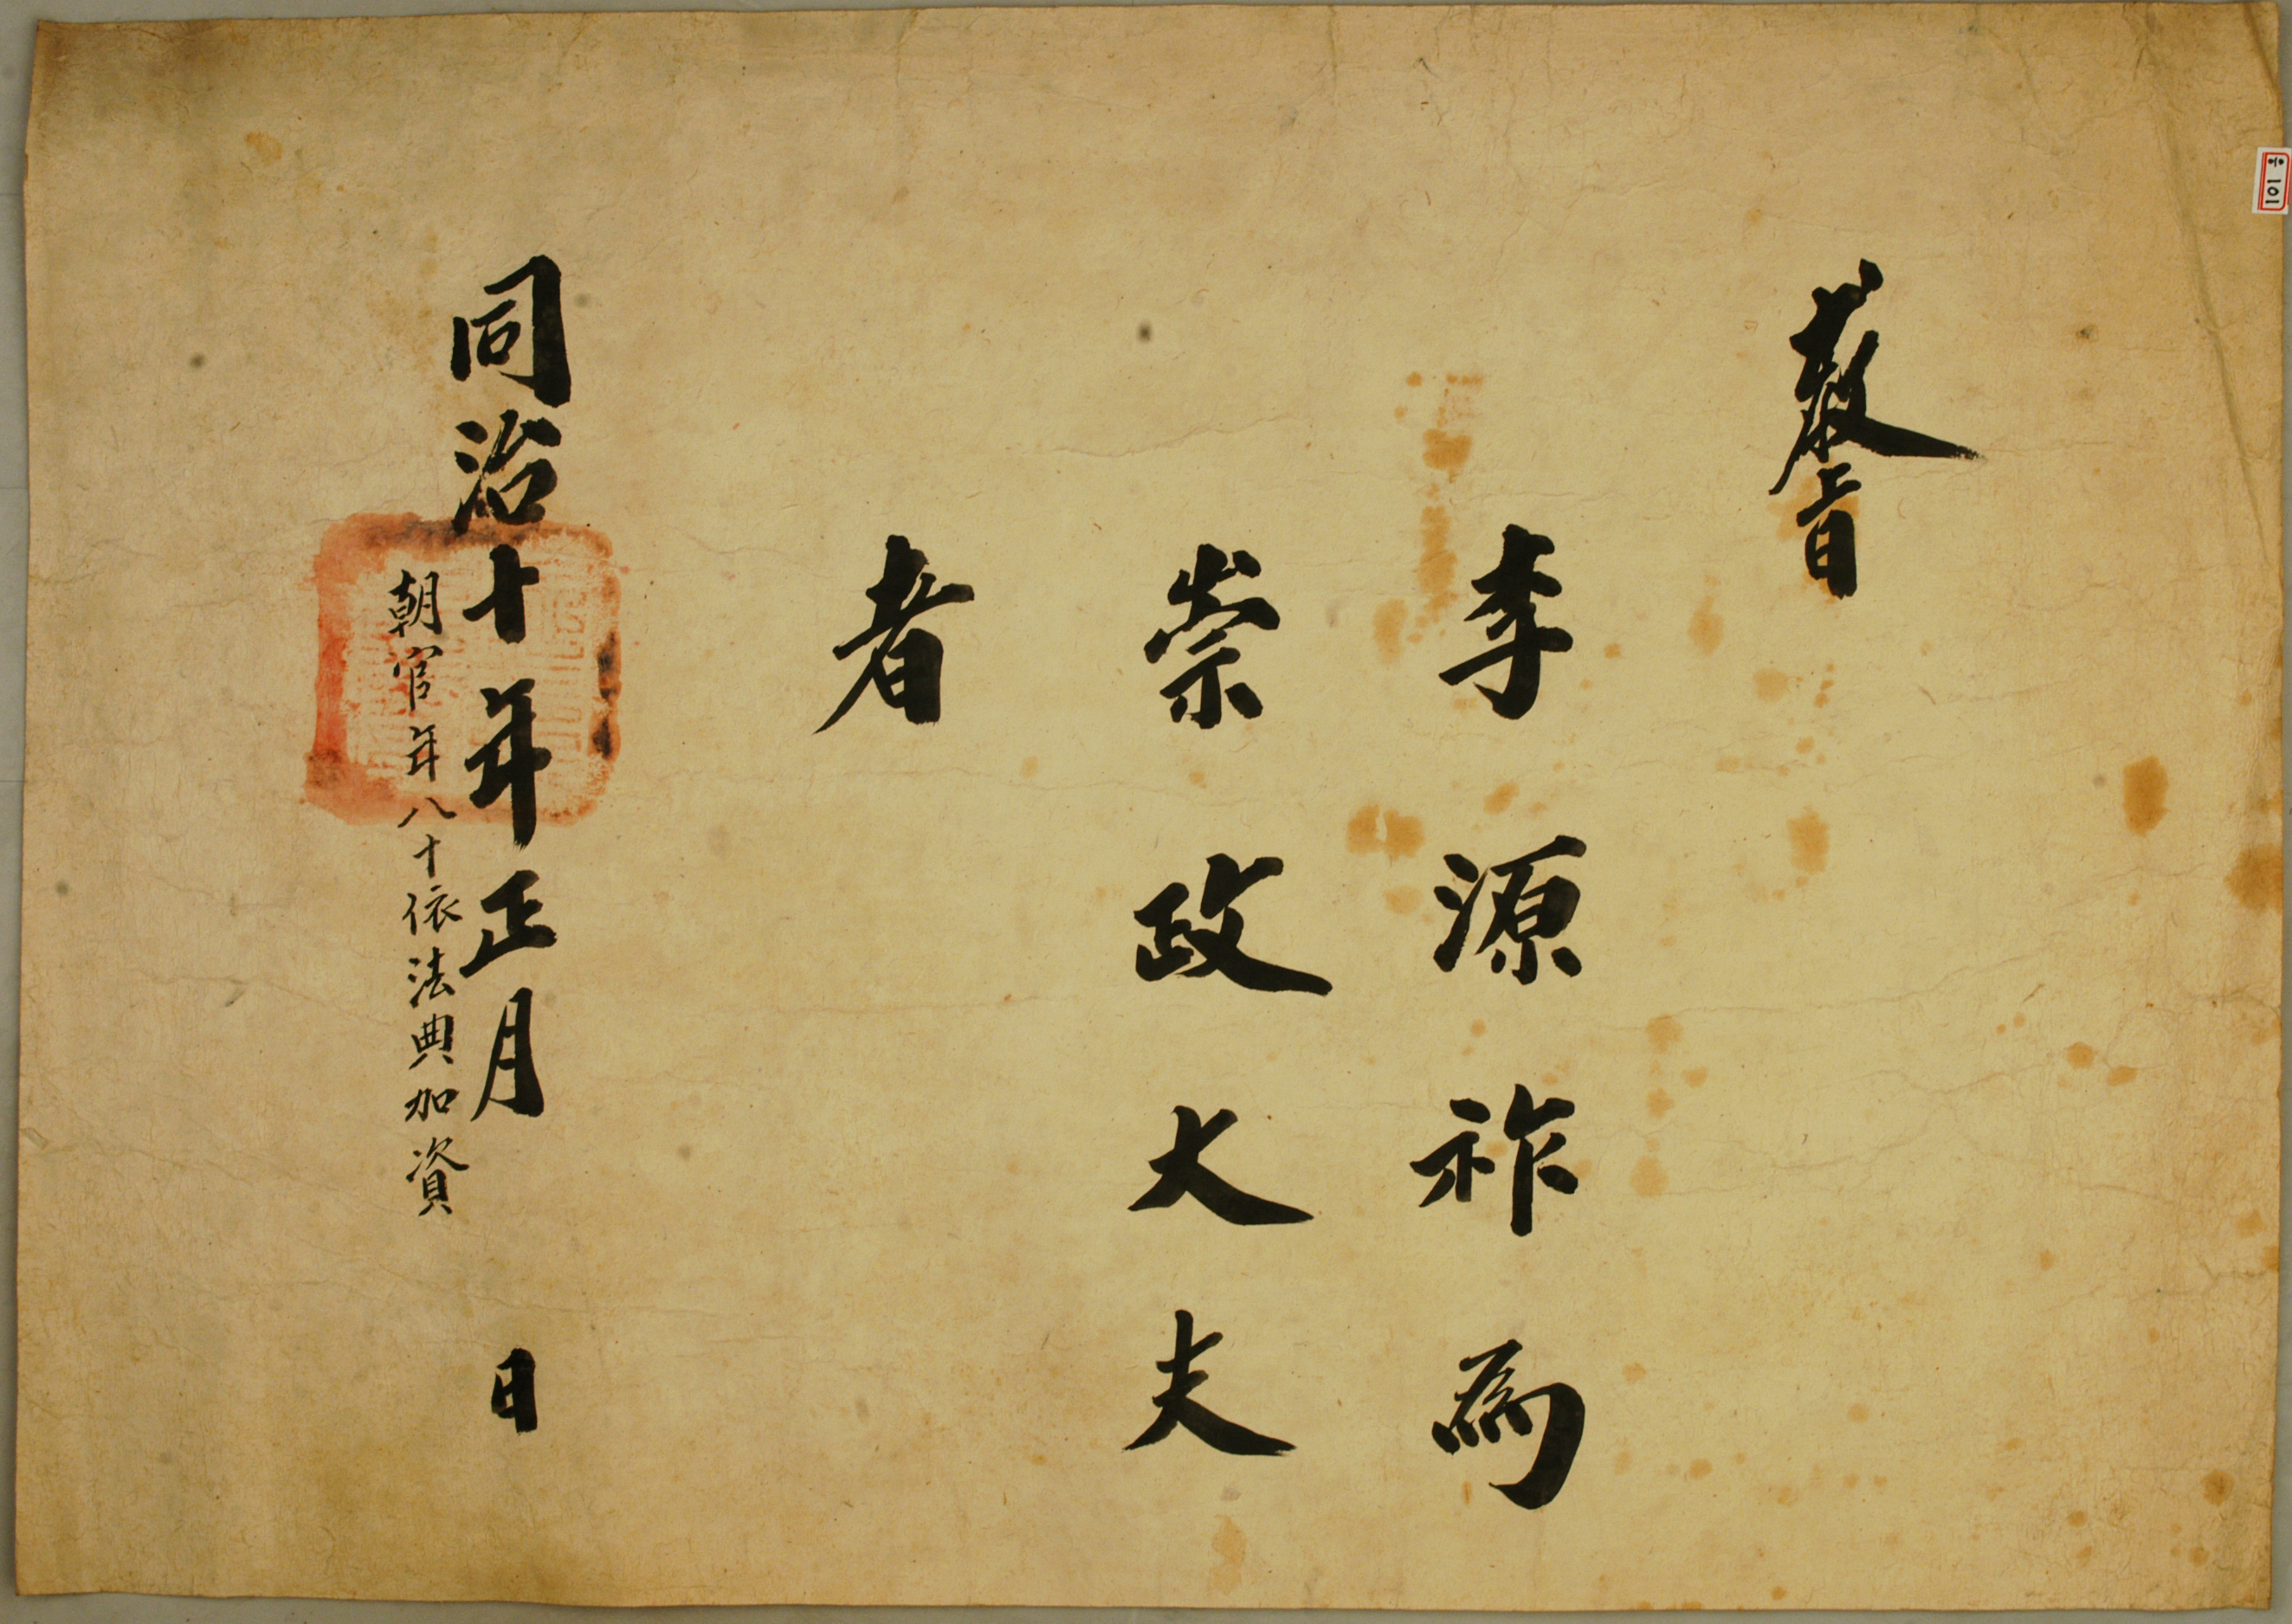 敎旨
李源祚爲
崇政大夫
者
同治十年正月 日
朝官年八十依法典加資
101 호